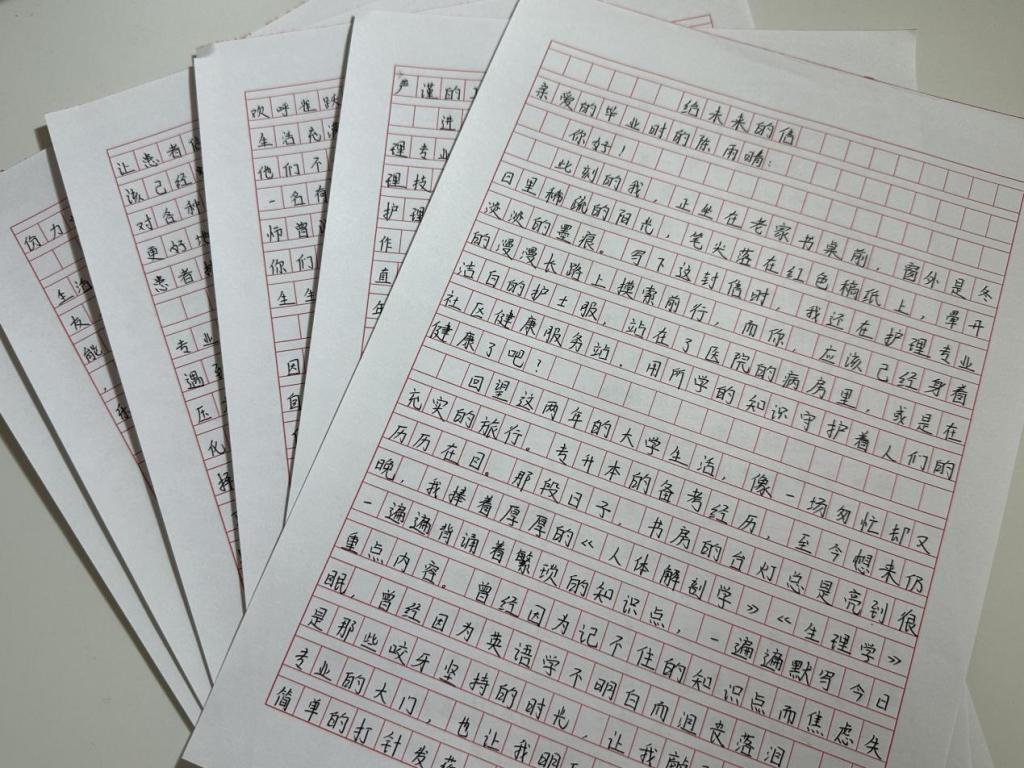 伤力
生活
友
能
让患者
该已经
对各种
更好地
患者
专业
遇到
压
化
择
欢呼雀跃
生活充满
他们不
一名有
师曾
你们
生生
因
自
严谨的
进
理专业
理技
护理
作
直
年
给未来的信
亲爱的毕业时的陈雨晴：
你好！
此刻的我，正坐在老家书桌前，窗外是冬
日里稀疏的阳光，笔尖落在红色稿纸上，晕开
淡淡的墨痕。写下这封信时，我还在护理专业
的漫漫长路上摸索前行，而你，应该已经身着
洁白的护士服，站在了医院的病房里，或是在
社区健康服务站，用所学的知识守护着人们的
健康了吧？
回望这两年的大学生活，像一场匆忙却又
充实的旅行。专升本的备考经历，至今想来仍
历历在目。那段日子，书房的台灯总是亮到很
晚，我捧着厚厚的《人体解剖学》《生理学》
一遍遍背诵着繁琐的知识点，一遍遍默写今日
重点内容。曾经因为记不住的知识点而焦虑失
眠，曾经因为英语学不明白而沮丧落泪
是那些咬牙坚持的时光，让我
专业的大门，也让我明
简单的打针发药